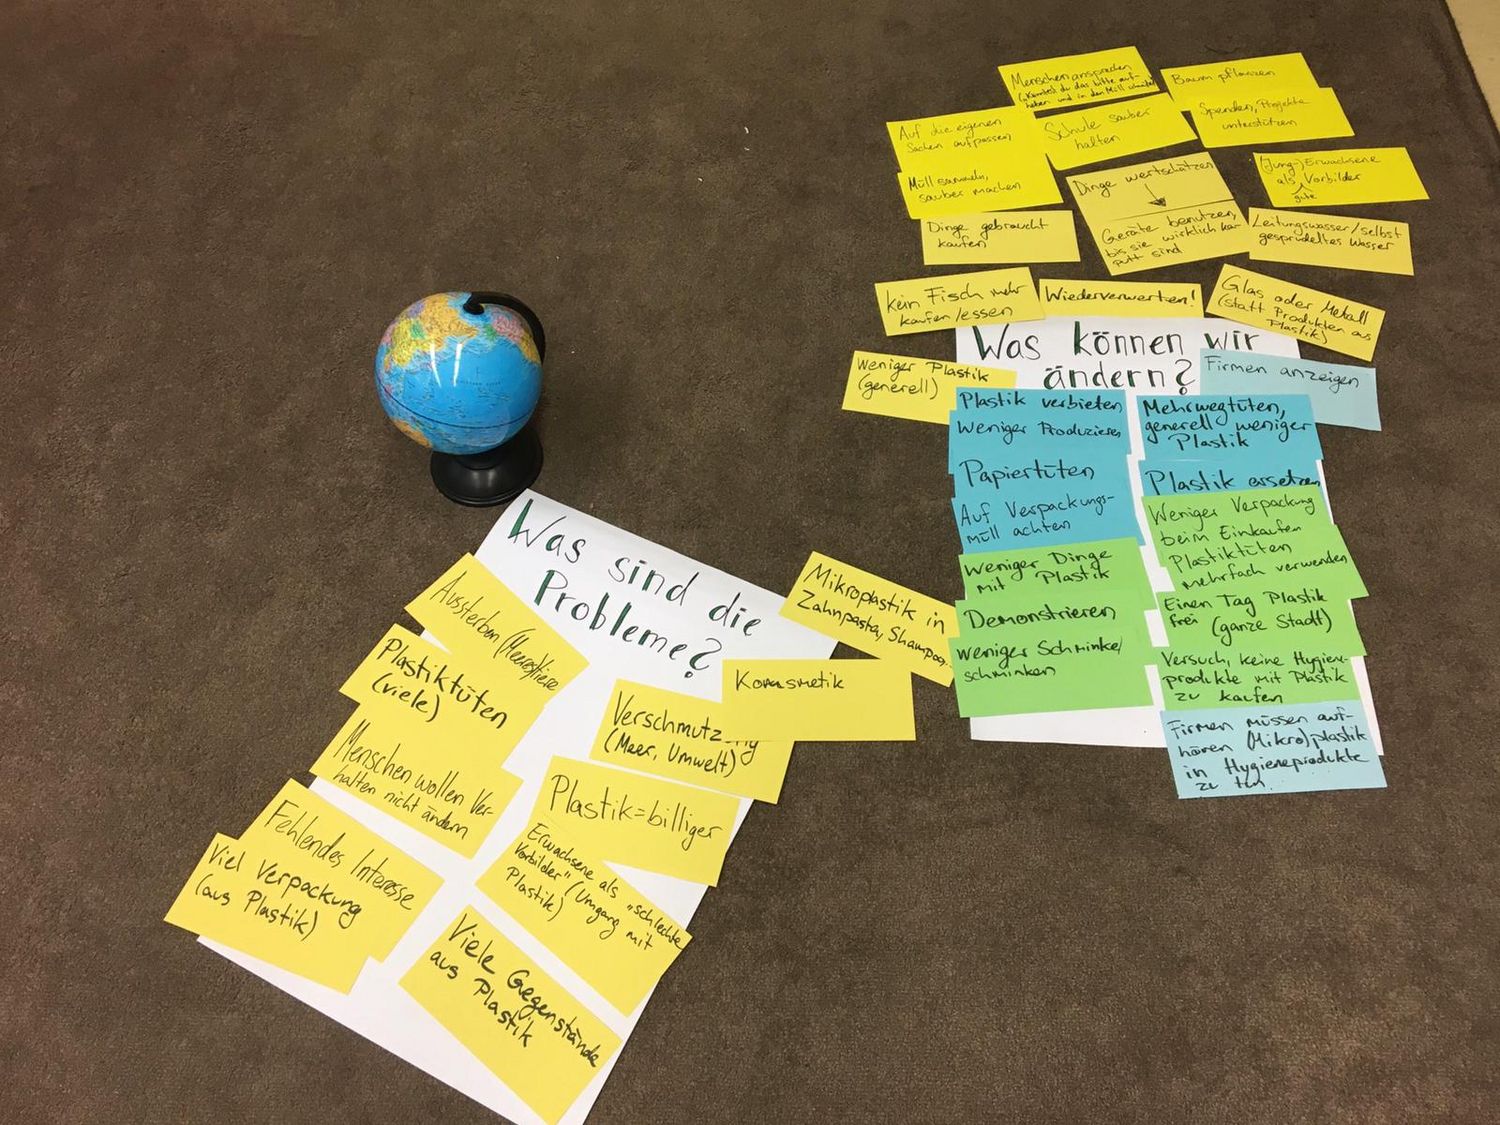 Was sind die
Probleme?
Aussterben (Meerestiere
Plastiktüten
(viele)
Menschen wollen Ver-
halten nicht ändern
Fehlendes Interesse
Viel Verpackung
(aus Plastik)
Mikroplastik in
Zahnpasta, Shampoo..
Kosmetik
Verschmutzung
(Meer, Umwelt)
Plastik=billiger
Erwachsene als „schlechte
Vorbilder" (Umgang mit
Plastik)
Viele Gegenstände
aus Plastik
Menschen ansprechen
(„Könntest du das bitte auf-
heben und in den Müll
Baum pflanzen
Auf die eigenen
Sachen aufpassen
Schule sauber
halten
Spenden, Projekte
unterstützen
Müll sammeln,
sauber machen
Dinge wertschätzen
Geräte benutzen,
bis sie wirklich ka-
putt sind
(Jung-) Erwachsene
als gute Vorbilder
Dinge gebraucht
kaufen
Leitungswasser/selbst
gesprudeltes Wasser
kein Fisch mehr
kaufen/essen
Wiederverwerten!
Glas oder Metall
(statt Produkten aus
Plastik)
Was können wir
ändern?
Weniger Plastik
(generell)
Firmen anzeigen
Plastik verbieten
Weniger Produzieren
Papiertüten
Auf Verpackungs-
müll achten
Weniger Dinge
mit Plastik
Demonstrieren
Weniger Schminke/
schminken
Mehrwegtüten,
generell weniger
Plastik
Plastik ersetzen
Weniger Verpackung
beim Einkaufen
Plastiktüten
mehrfach verwenden
Einen Tag Plastik
frei (ganze Stadt)
Versuch, keine Hygiene-
produkte mit Plastik
zu kaufen
Firmen müssen auf-
hören (Mikro)plastik
in Hygieneprodukte
zu tun.